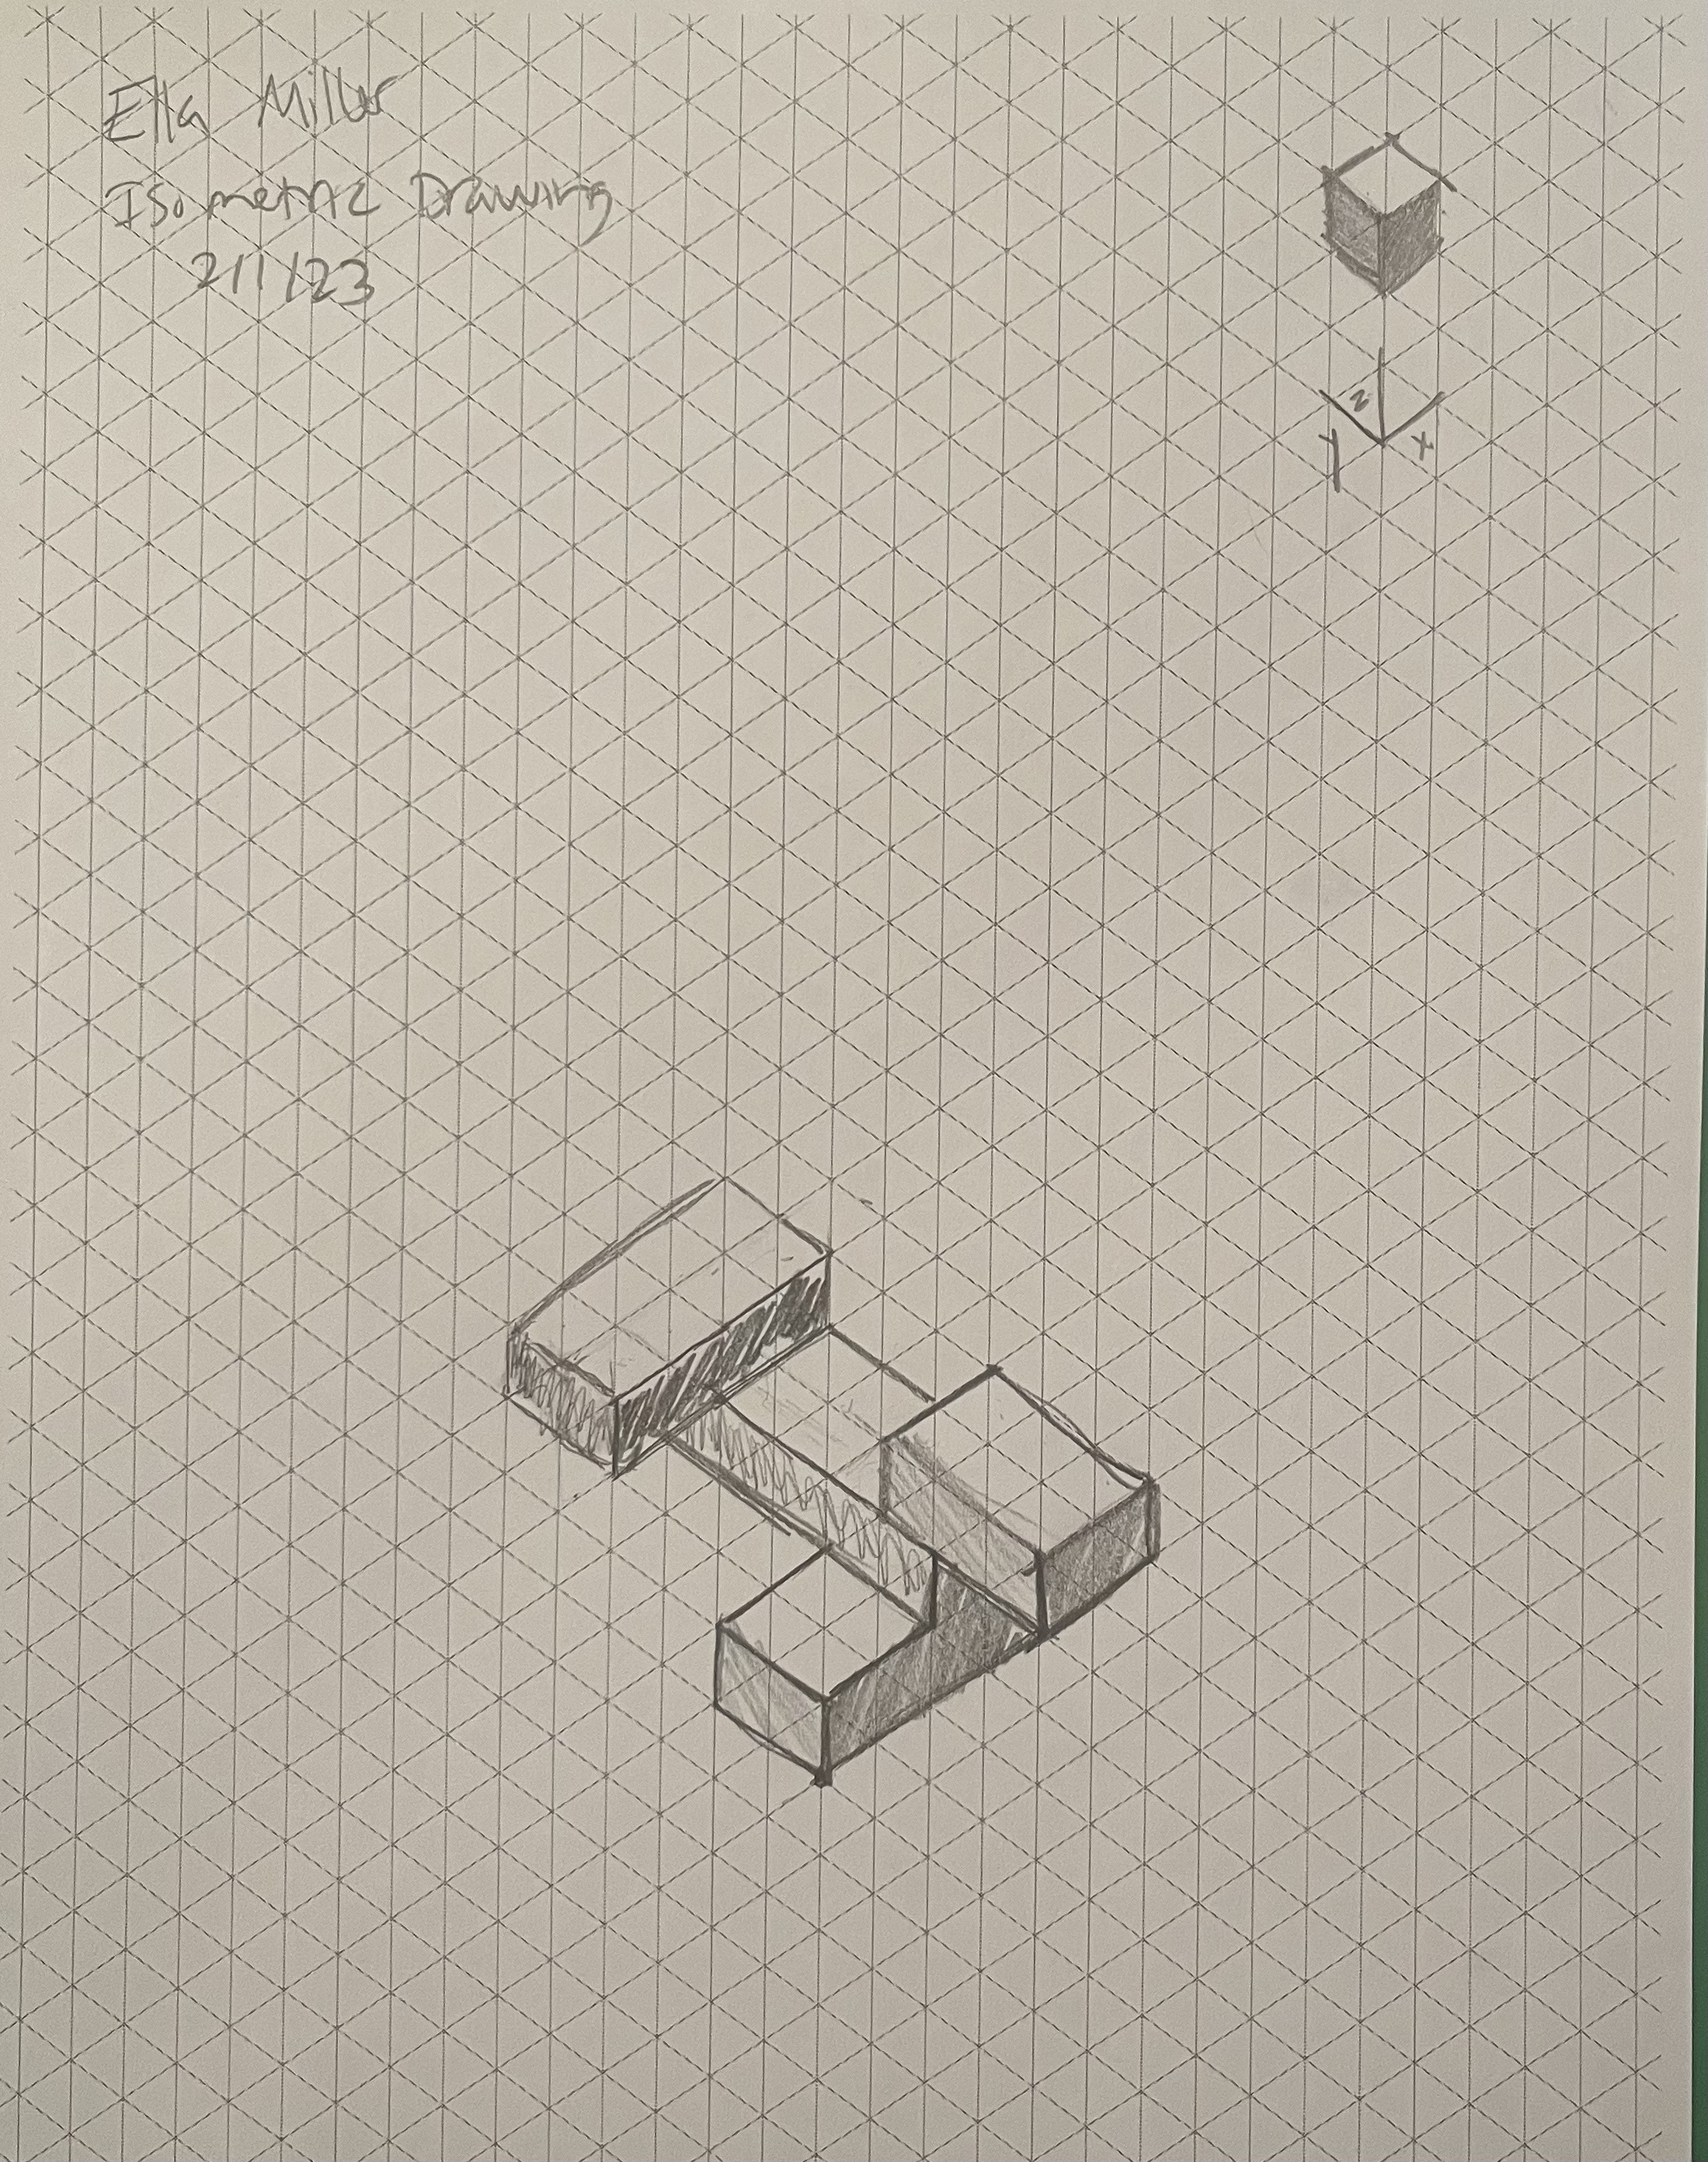 Ella Miller
Isometric Drawing
2/1/23
z
y x